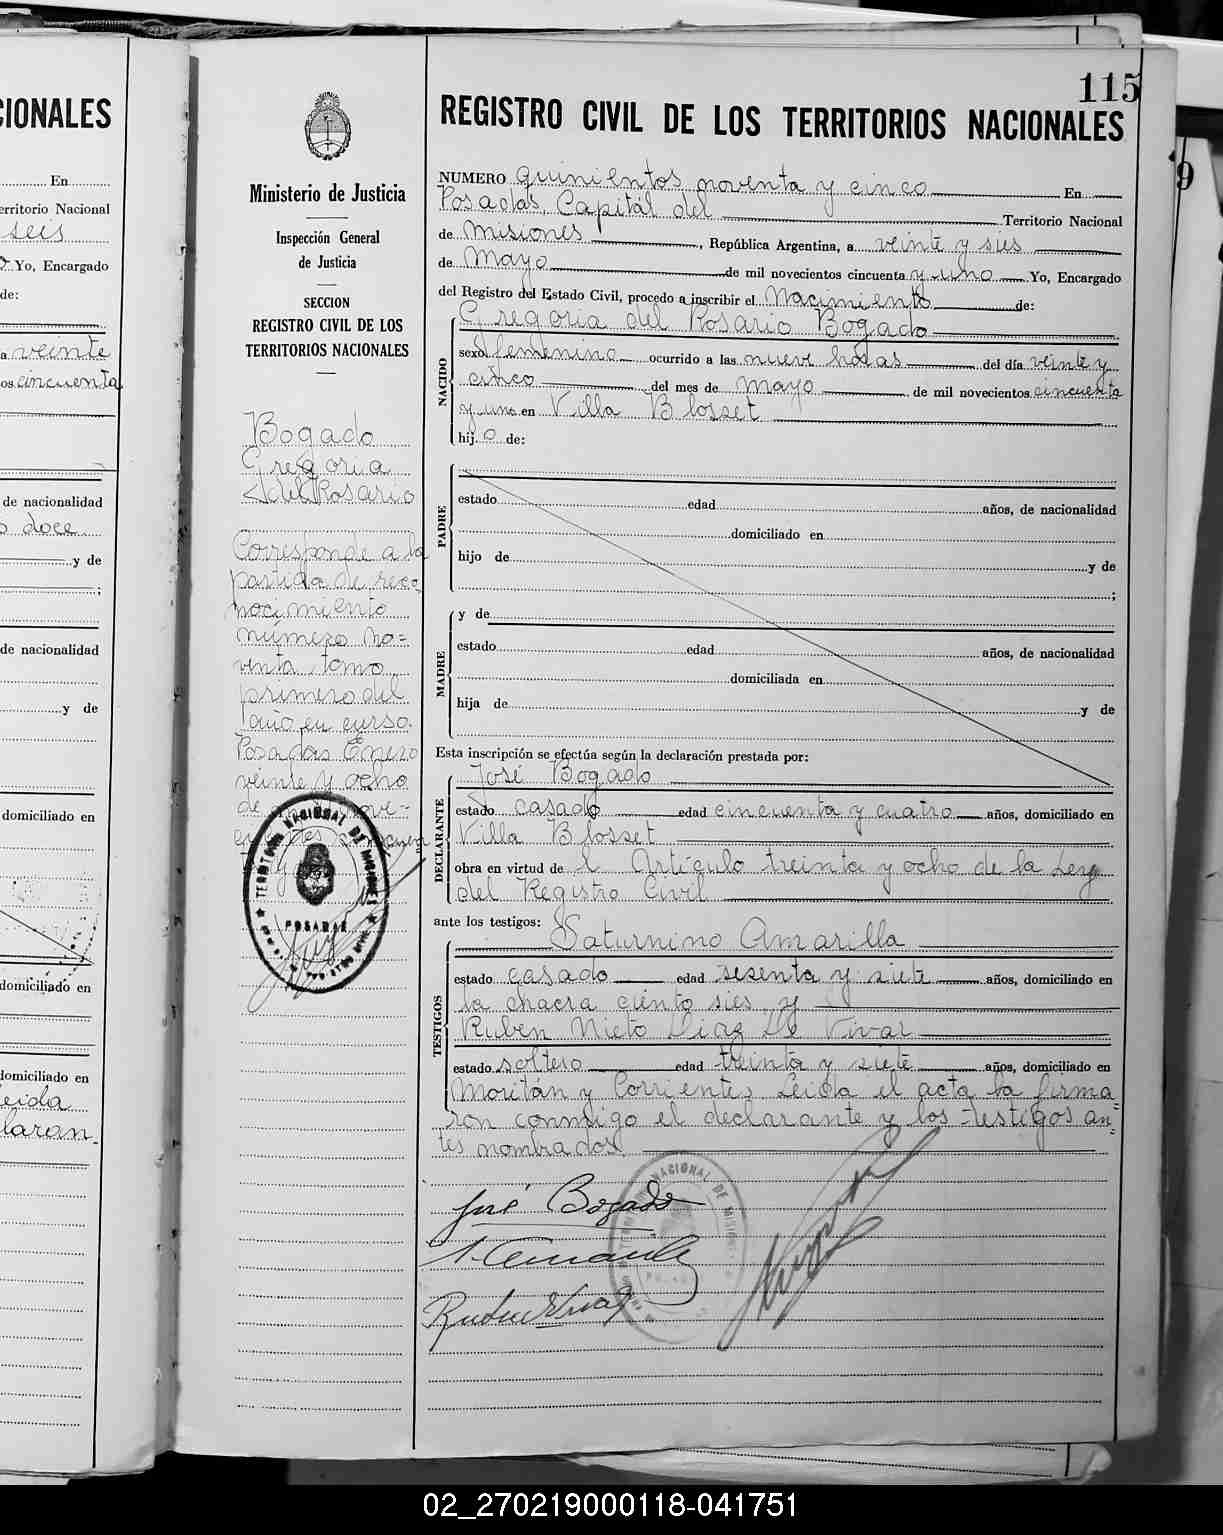 CIONALES
En
erritorio Nacional
seis
Yo, Encargado
de:
a veinte
os cincuenta
de nacionalidad
doce
y de
de nacionalidad
y de
domiciliado en
domiciliado en
domiciliado en
leida
laran-
Ministerio de Justicia
Inspección General
de Justicia
SECCION
REGISTRO CIVIL DE LOS
TERRITORIOS NACIONALES
Bogado
Gregoria
del Rosario
Corresponde a la
partida de reco
nocimiento
número no=
venta tomo
primero del
año en curso.
Posadas Enero
veinte y ocho
de
TERRITORIO NACIONAL DE MISIONES
POSADAS
115
REGISTRO CIVIL DE LOS TERRITORIOS NACIONALES
NUMERO quinientos noventa y cinco En
Posadas, Capitál del Territorio Nacional
de Misiones, República Argentina, a veinte y sies
de Mayo de mil novecientos cincuenta y uno Yo, Encargado
del Registro del Estado Civil, procedo a inscribir el Nacimiento de:
NACIDO
Gregoria del Rosario Bogado
sexo femenino ocurrido a las nueve horas del día veinte y
cinco del mes de mayo de mil novecientos cincuenta
y uno en Villa Blosset
hij o de:
PADRE
estado edad años, de nacionalidad
domiciliado en
hijo de y de
;
MADRE
y de
estado edad años, de nacionalidad
domiciliada en
hija de y de
Esta inscripción se efectúa según la declaración prestada por:
DECLARANTE
José Bogado
estado casado edad cincuenta y cuatro años, domiciliado en
Villa Blosset
obra en virtud de l Artículo treinta y ocho de la Ley
del Registro Civil
ante los testigos:
TESTIGOS
Saturnino Amarilla
estado casado edad sesenta y siete años, domiciliado en
la chacra ciento sies y
Ruben Nieto Diaz de Vivar
estado soltero edad treinta y siete años, domiciliado en
Moritán y Corrientes Leida el acta la firma=
ron conmigo el declarante y los testigos an=
tes nombrados.
José Bogado
02_270219000118-041751
9